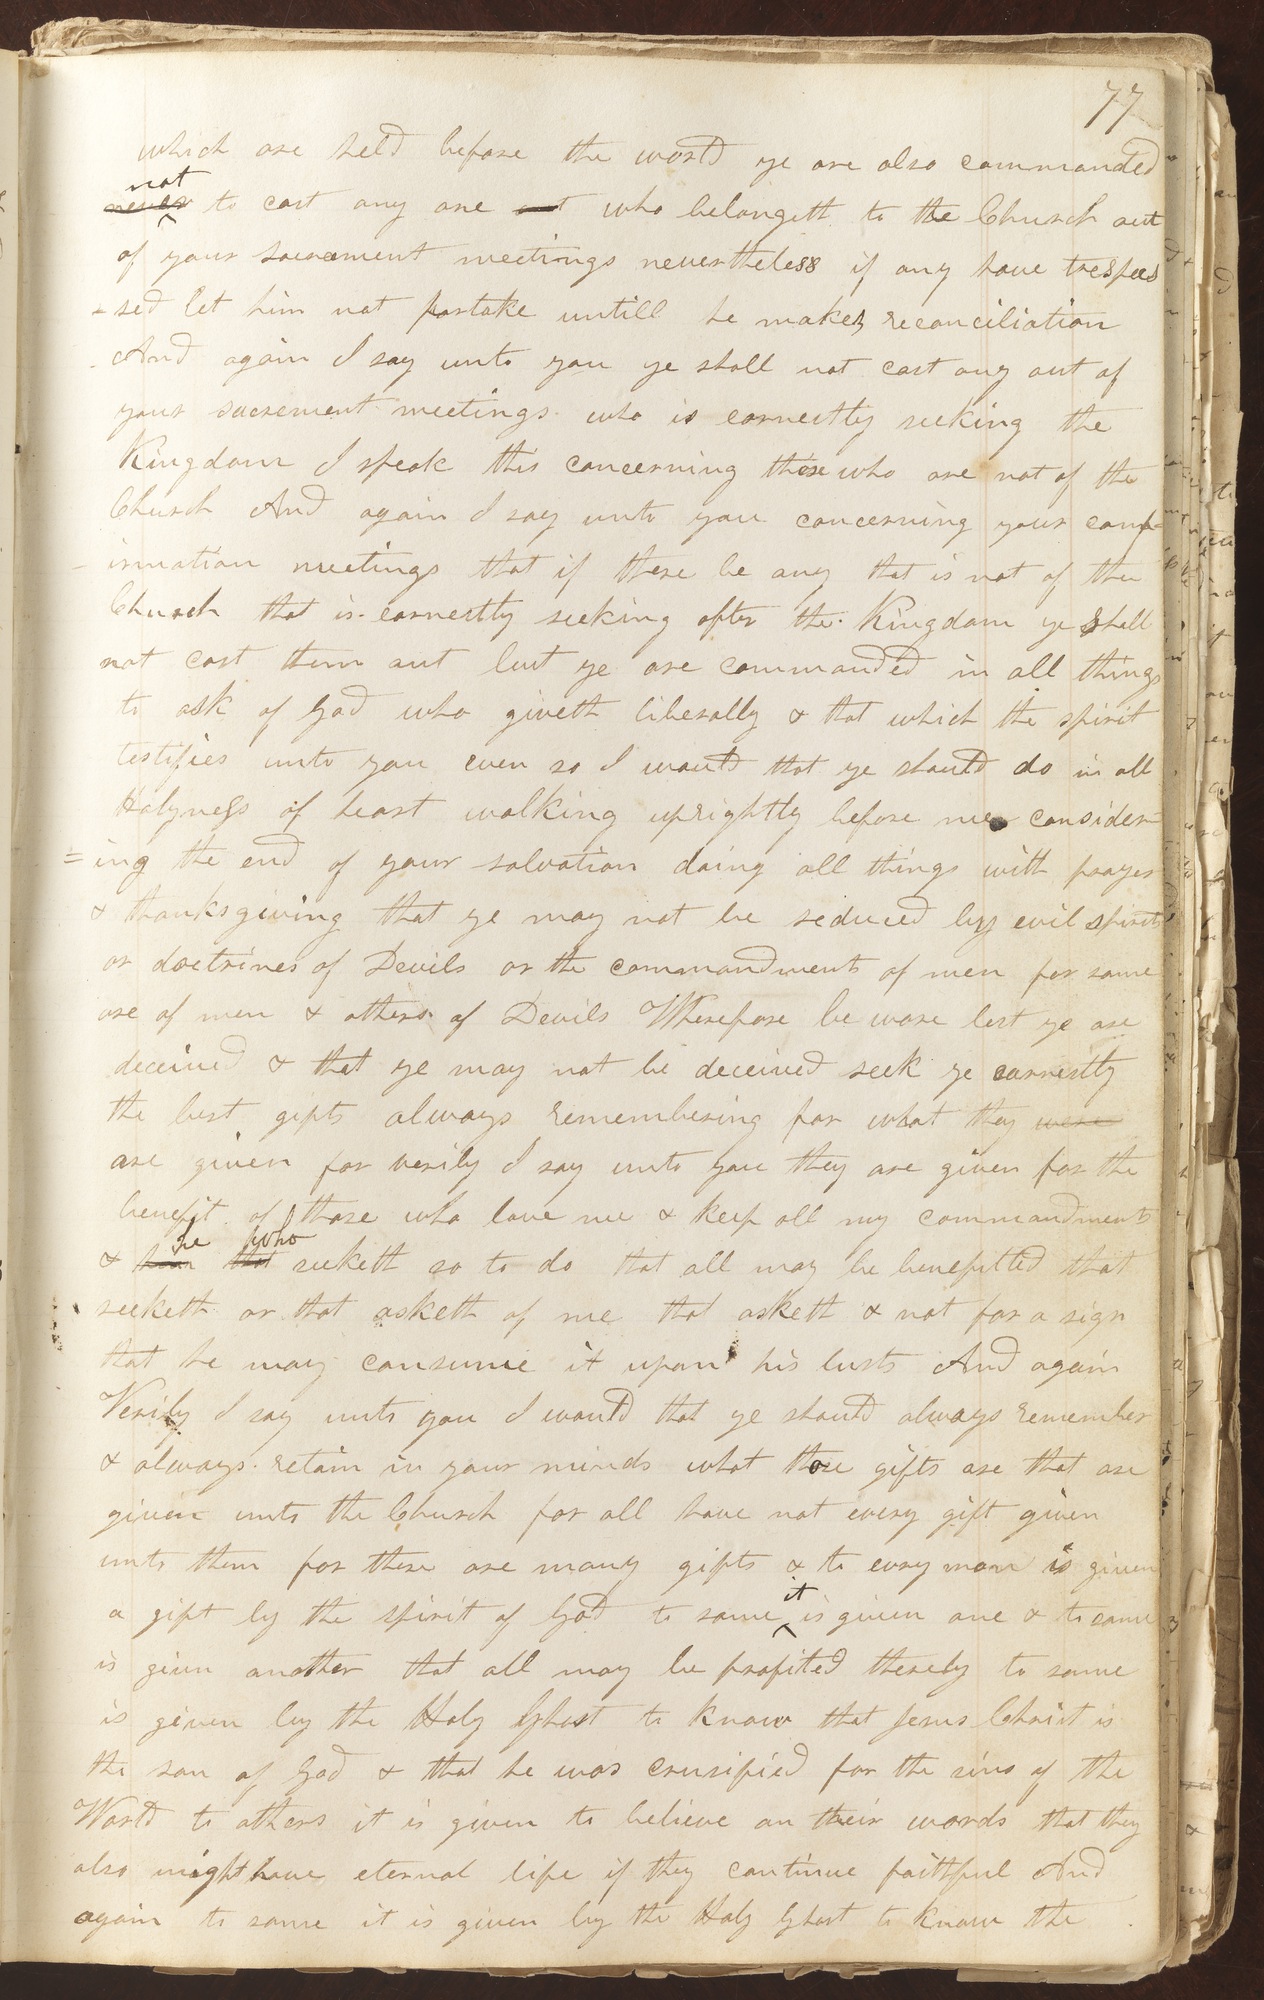 77
which are held before the world ye are also commanded
not
never to cast any one out who belongeth to the Church out
of your sacrament meetings nevertheless if any have trespas
-sed let him not partake untill he makes reconciliation
And again I say unto you ye shall not cast any out of
your sacrement meetings who is earnestly seeking the
Kingdom I speak this concerning those who are not of the
Church And again I say unto you concerning your conf-
-irmation meetings that if there be any that is not of the
Church that is earnestly seeking after the Kingdom ye shall
not cast them out but ye are commanded in all things
to ask of God who giveth liberally & that which the spirit
testifies unto you even so I would that ye should do in all
Holyness of heart walking uprightly before me consider-
=ing the end of your salvation doing all things with prayer
& thanksgiving that ye may not be seduced by evil spirits
or doctrines of Devils or the commandments of men for some
are of men & others of Devils Wherefore be ware lest ye are
deceived & that ye may not be deceived seek ye earnestly
the best gifts always remembering for what they were
are given for verily I say unto you they are given for the
benefit of those who love me & keep all my commandments
he who
& him that seeketh so to do that all may be benefitted that
seeketh or that asketh of me that asketh & not for a sign
that he may consume it upon his lusts And again
Verily I say unto you I would that ye should always remember
& always retain in your minds what those gifts are that are
given unto the Church for all have not every gift given
unto them for there are many gifts & to every man is given
it
a gift by the spirit of God to some is given one & to some
is given another that all may be profited thereby to some
is given by the Holy Ghost to know that Jesus Christ is
the son of God & that he was crusified for the sins of the
World to others it is given to believe on their words that they
also might have eternal life if they continue faithful And
again to some it is given by the Holy Ghost to know the